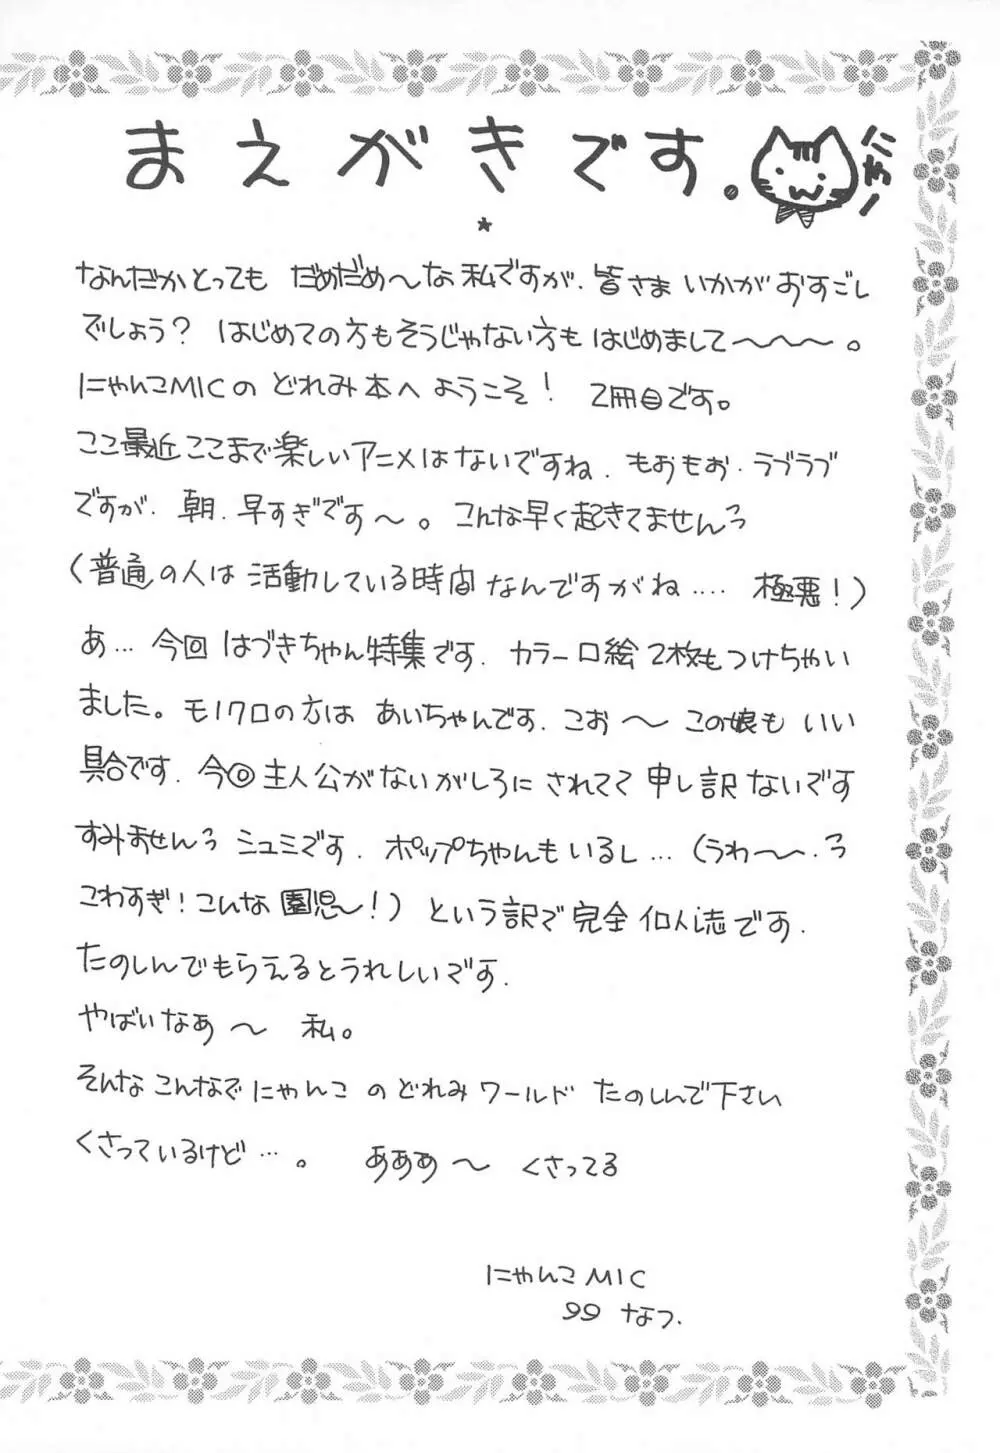 まえがきです。
にゃー
なんだかとっても だめだめ〜な私ですが、皆さま いかがおすごし
でしょう？ はじめての方もそうじゃない方も はじめまして〜〜〜。
にゃんこMICの どれみ本へ ようこそ！ 2冊目です。
ここ最近ここまで楽しいアニメはないですね、もおもお、ラブラブ
ですが、朝、早すぎです〜。こんな早く起きてませんっ
（普通の人は 活動している時間なんですがね…. 極悪！）
あ… 今回 はづきちゃん特集です、カラー口絵 2枚もつけちゃい
ました。モノクロの方は あいちゃんです、こお〜 この娘も いい
具合です、今回主人公がないがしろに されてて 申し訳ないです
すみませんっ シュミです、ポップちゃんもいるし…（うわ〜、っ
こわすぎ！こんな園児〜！）という訳で 完全 個人誌です、
たのしんでもらえるとうれしいです、
やばいなぁ〜 私。
そんな こんなで にゃんこ の どれみ ワールド たのしんで下さい
くさっているけど…。 あああ〜 くさってる
にゃんこ MIC
99 なつ、